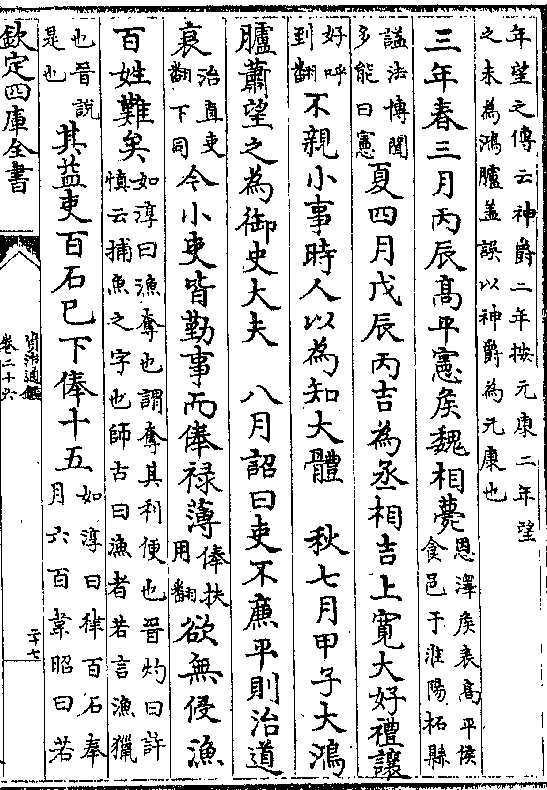 年望之傳云神爵二年按元康二年望
之未為鴻臚盖誤以神爵為元康也
三年春三月丙辰髙平憲矦魏相薨恩澤矦表髙平侯食邑于淮陽柘縣
諡法博聞多能曰憲夏四月戊辰丙吉為丞相吉上寛大好禮讓
好呼到翻不親小事時人以為知大體　秋七月甲子大鴻
臚蕭望之為御史大夫　八月詔曰吏不廉平則治道
衰治直吏翻下同今小吏皆勤事而俸禄薄俸扶用翻欲無侵漁
百姓難矣如淳曰漁奪也謂奪其利便也晉灼曰許慎云捕魚之字也師古曰漁者若言漁獵
也晉説是也其益吏百石已下俸十五如淳曰律百石奉月六百韋昭曰若
欽定四庫全書
資治通鑑
卷二十六
二十七